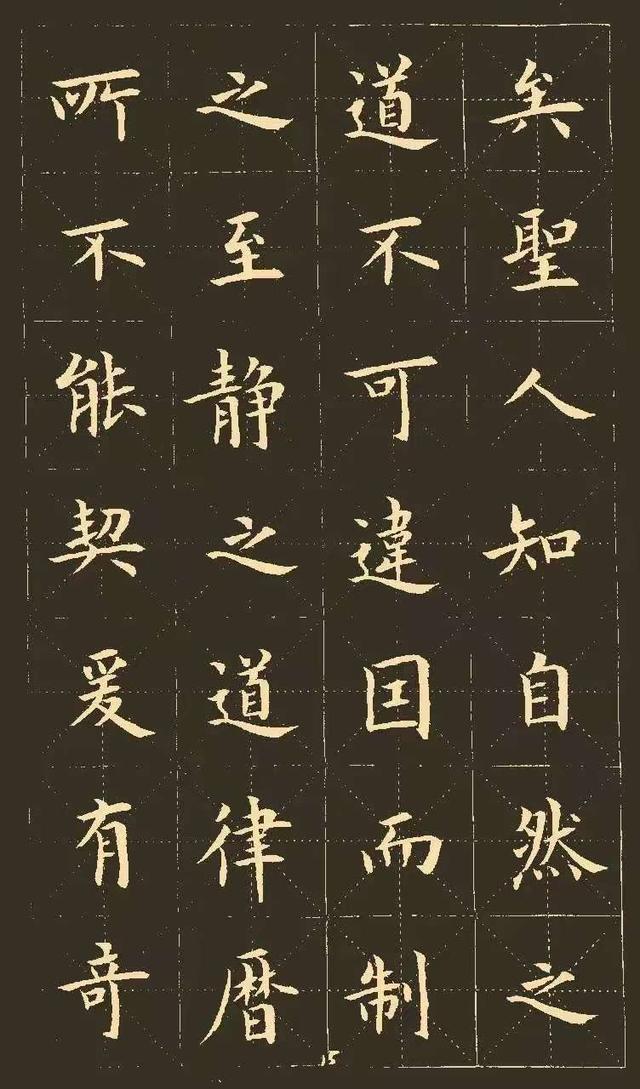 矣聖人知自然之
道不可違囙而制
之至静之道律暦
所不能契爰有竒
15